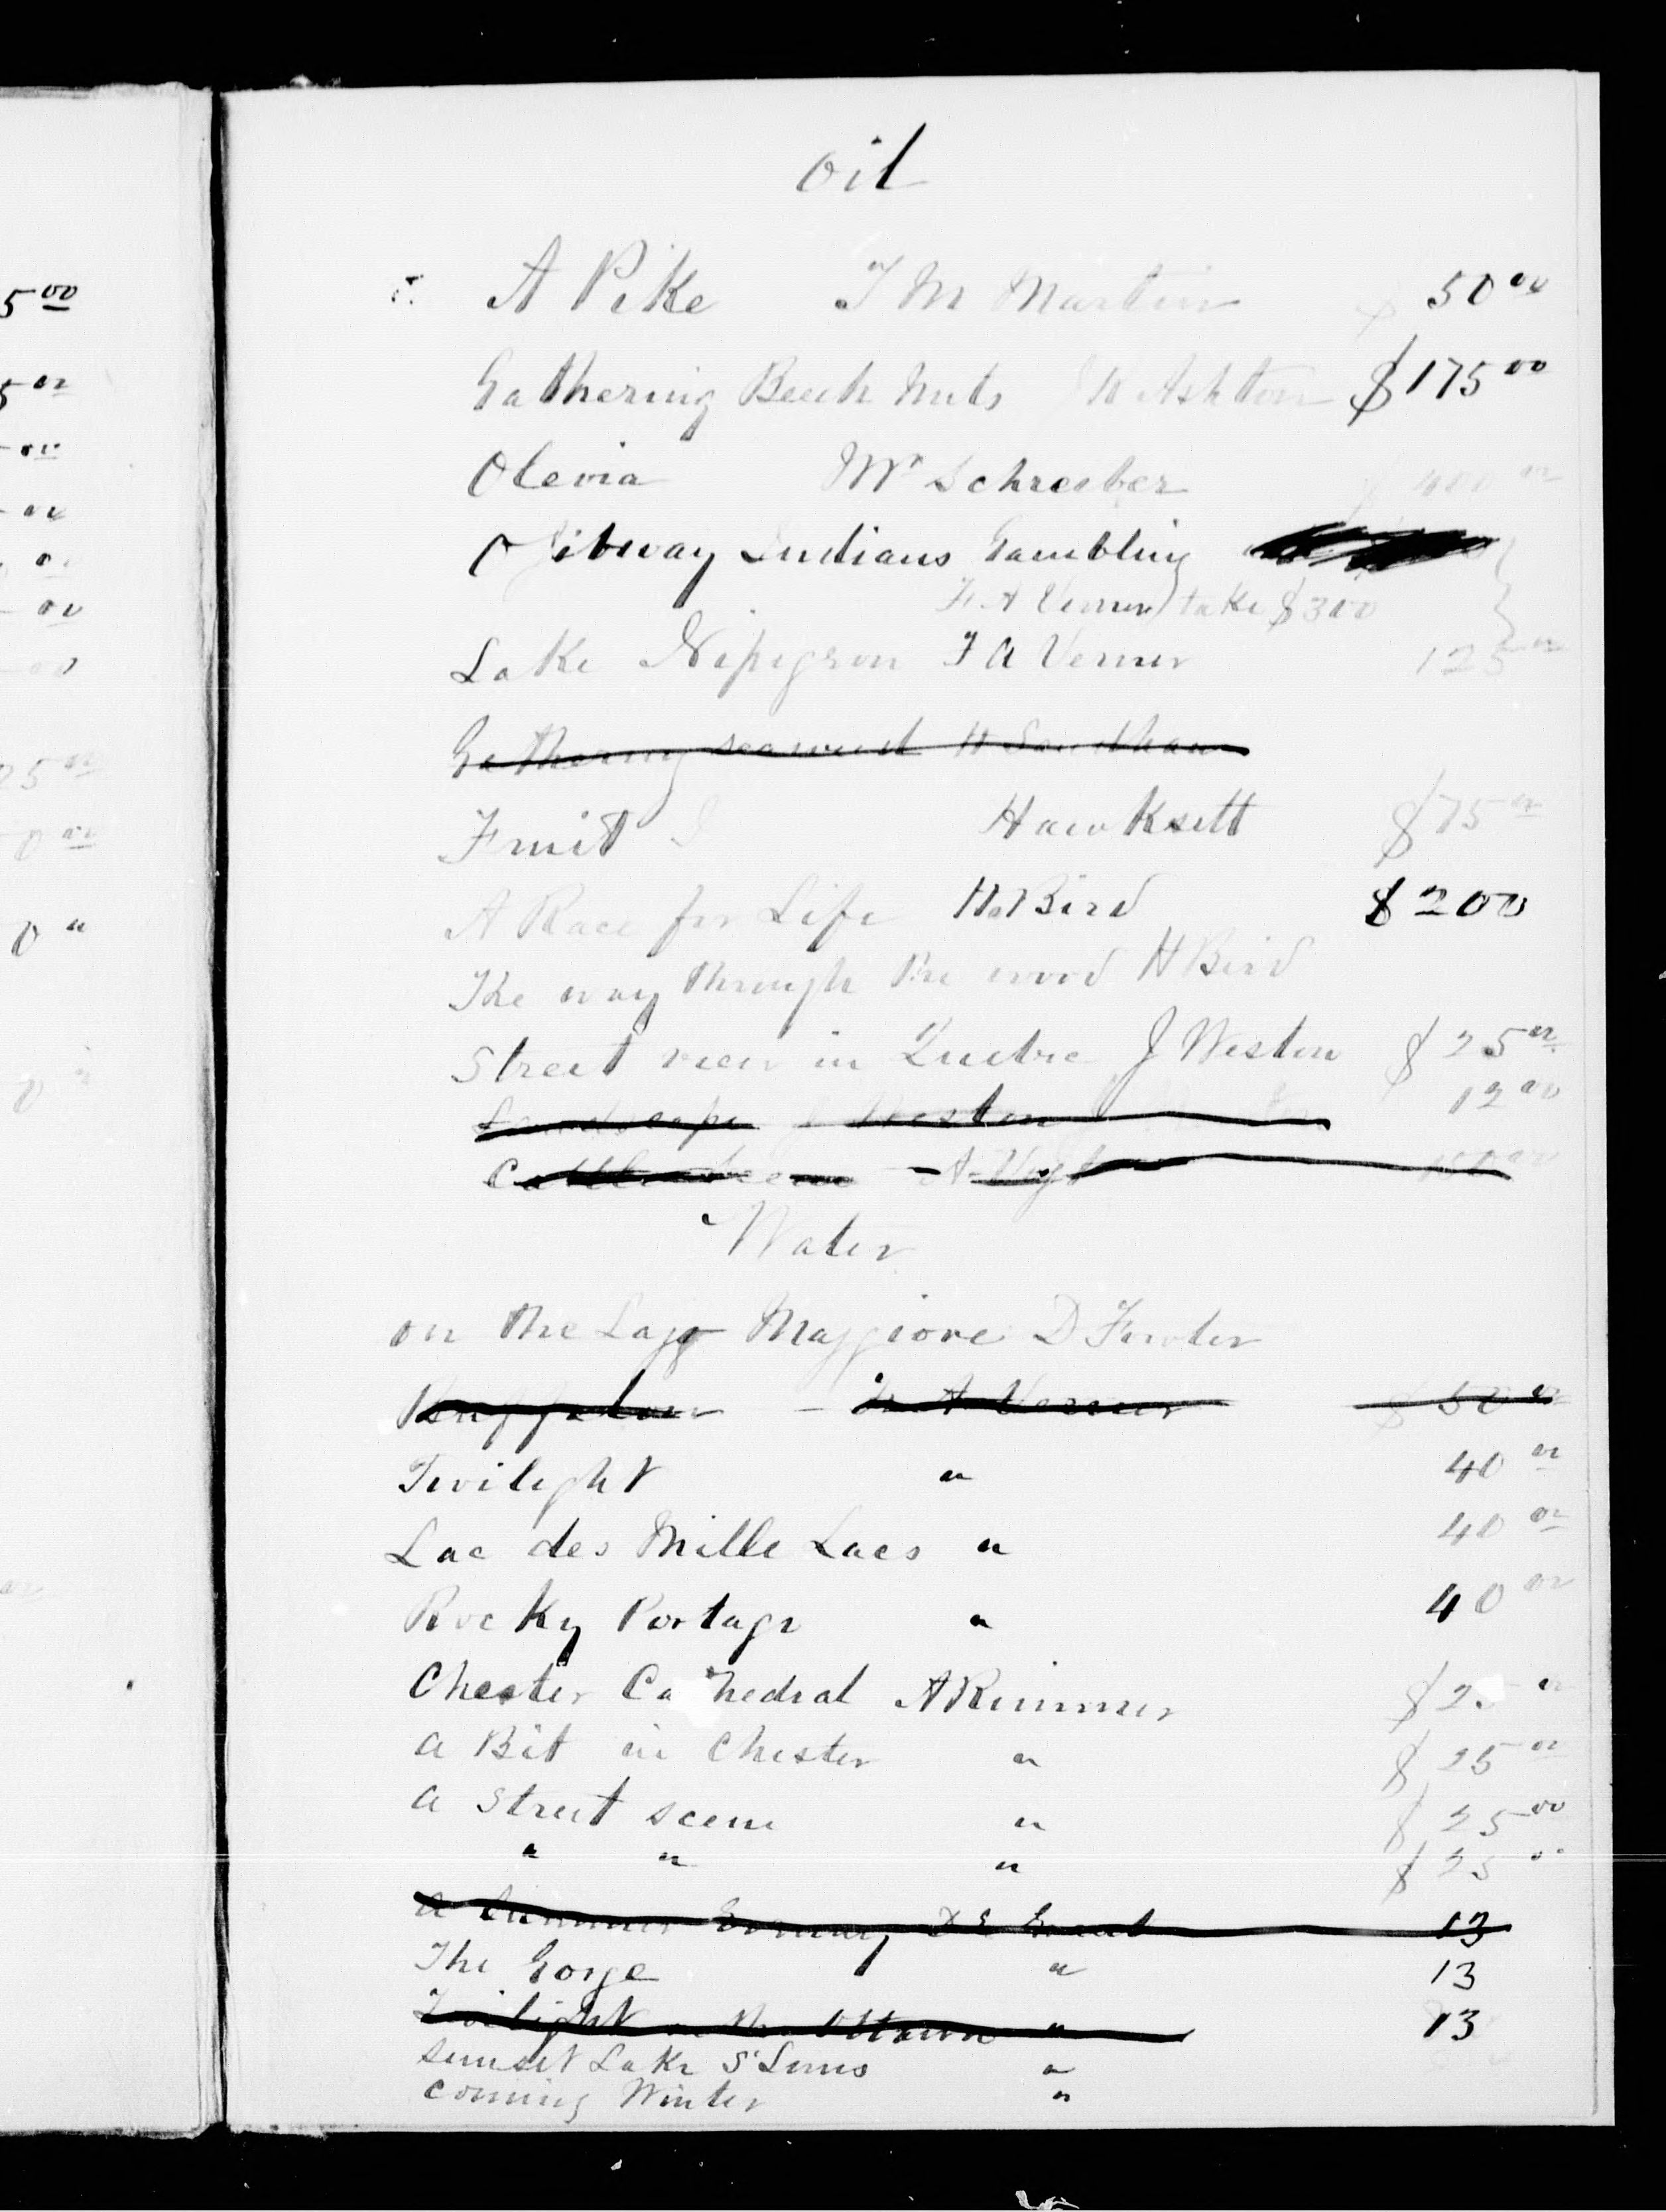 oil
A Pike T M Martin $ 50 00
Gathering Beech Nuts J H Ashton $175 00
Olevia Mr Schreiber $ 400 00
Ojibway Indians Gambling
F. A Verner) take $300
Lake Nipegson F A Verner 125 00
Gathering seaweed H Sandham
Fruit Hawksett $75 00
A Race for Life H. Bird $200
The way through the wood H Bird
Street view in Quebec J Weston $ 25 00
Landscape J Weston 12 00
Cattle scene A Vogt 150 00
Water
on the Lago Maggiore D Fowler
Buffalow F. A Verner $ 50 00
Twilight " 40 00
Lac des Mille Lacs " 40 00
Rocky Portage " 40 00
Chester Cathedral A Rimmer $ 25 00
A Bit in Chester " $ 25 00
A Street scene " $ 25 00
" " " $ 25 00
A Summer Evening F E Grant 13
The Gorge " 13
Twilight on the Ottawa " 13
Sunset Lake St Louis "
Coming Winter "
5 00
5 00
00
00
0
00
00
25 00
0 00
0 "
0